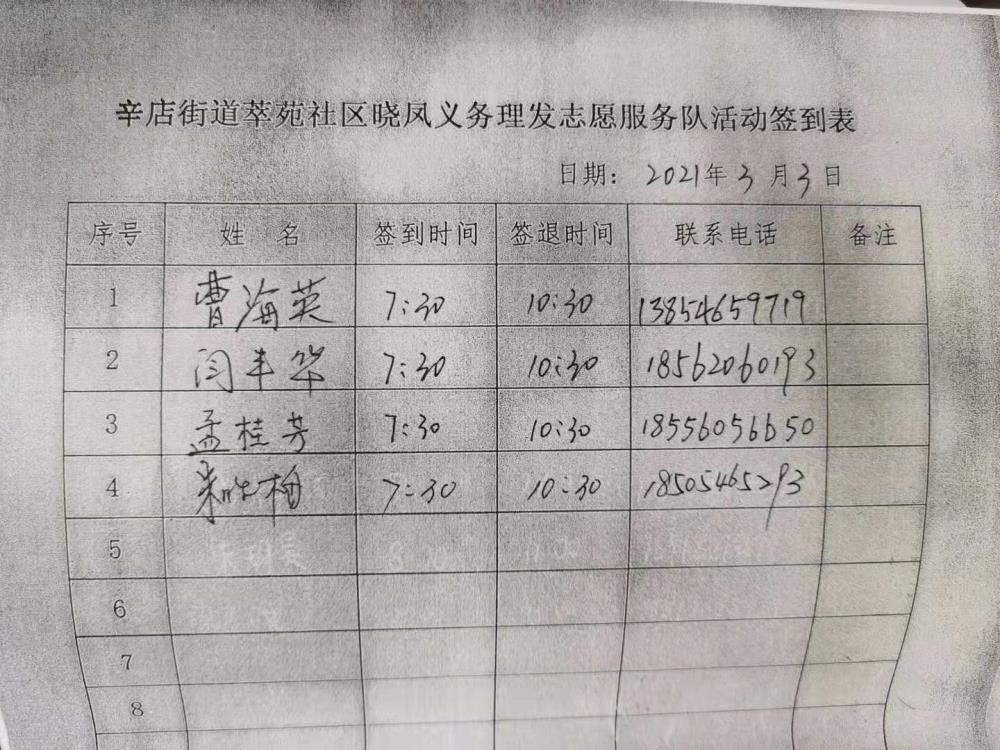 辛店街道萃苑社区晓凤义务理发志愿服务队活动签到表
日期： 2021年 3 月 3 日
序号 姓 名 签到时间 签退时间 联系电话 备注
1 曹海英 7:30 10:30 13854659719
2 闫丰华 7:30 10:30 18562060193
3 孟桂芳 7:30 10:30 18556056650
4 7:30 10:30 18505465293
5
6
7
8